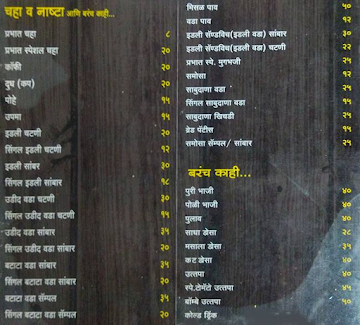 चहा व नाष्टा आणि बरंच काही...
प्रभात चहा ८
प्रभात स्पेशल चहा २०
कॉफी २०
दुध (कप) २०
पोहे १५
उपमा १५
इडली चटणी २०
सिंगल इडली चटणी १२
इडली सांबर ३०
सिंगल इडली सांबार १८
उडीद वडा चटणी ३०
सिंगल उडीद वडा चटणी १५
उडीद वडा सांबार ३५
सिंगल उडीद वडा सांबार २०
बटाटा वडा सांबार ३५
सिंगल बटाटा वडा सांबार २०
बटाटा वडा सॅम्पल ३५
सिंगल बटाटा वडा सॅम्पल २०
मिसळ पाव ५०
वडा पाव १२
इडली सॅण्डविच(इडली वडा) सांबार ३०
इडली सॅण्डविच(इडली वडा) चटणी २२
प्रभात स्पे. मुगभजी २५
समोसा १२
साबुदाणा वडा २५
सिंगल साबुदाणा वडा १५
साबुदाणा खिचडी २५
ब्रेड पॅटीस १५
समोसा सॅम्पल/ सांबार २५
बरंच काही...
पुरी भाजी ४०
पोळी भाजी ४०
पुलाव ४०
साधा डोसा २८
मसाला डोसा ३५
कट डोसा ४०
उत्तपा ४०
स्पे.टोमॅटो उत्तपा ४५
बॉम्बे उत्तपा ५०
कोल्ड ड्रिंक